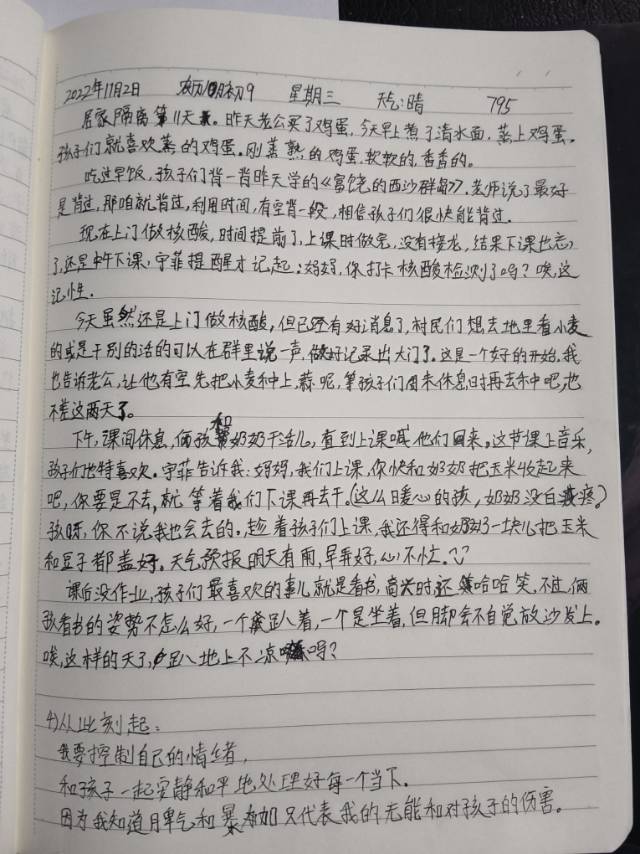 2022年11月2日 农历10月初9 星期三 天气:晴 795
居家隔离第11天。昨天老公买了鸡蛋,今天早上煮了清水面,蒸上鸡蛋。
孩子们就喜欢蒸的鸡蛋。刚蒸熟的鸡蛋软软的,香香的。
吃过早饭,孩子们背一背昨天学的《富饶的西沙群岛》。老师说了最好
是背过,那咱就背过,利用时间,有空背一段,相信孩子们很快能背过.
现在上门做核酸,时间提前了,上课时做完,没有接龙,结果下课也忘
了,还是中午下课,宁菲提醒才记起:妈妈,你打卡核酸检测了吗?唉,这
记性.
今天虽然还是上门做核酸,但已经有好消息了,村民们想去地里看小麦
的或是干别的活的可以在群里说一声,做好记录出大门了。这是一个好的开始.我
也告诉老公,让他有空先把小麦种上,蒜呢,等孩子们周末休息时再去种吧,也
不差这两天了。
下午,课间休息,俩孩和奶奶干活儿,直到上课哩他们回来。这节课上音乐,
孩子们也特喜欢。宁菲告诉我:妈妈,我们上课,你快和奶奶把玉米收起来
吧,你要是不去,就等着我们下课再去干。(这么暖心的孩,奶奶没白疼)
孩呀,你不说我也会去的。趁着孩子们上课,我还得和奶奶一块儿把玉米
和豆子都盖好。天气预报明天有雨,早弄好,心不忙。
课后没作业,孩子们最喜欢的事儿就是看书,高兴时还哈哈笑,不过,俩
孩看书的姿势不怎么好,一个趴着,一个是坐着,但脚会不自觉放沙发上。
唉,这样的天了,趴地上不凉吗?
4)从此刻起:
我要控制自己的情绪,
和孩子一起安静和平地处理好每一个当下.
因为我知道脾气和暴力只代表我的无能和对孩子的伤害。